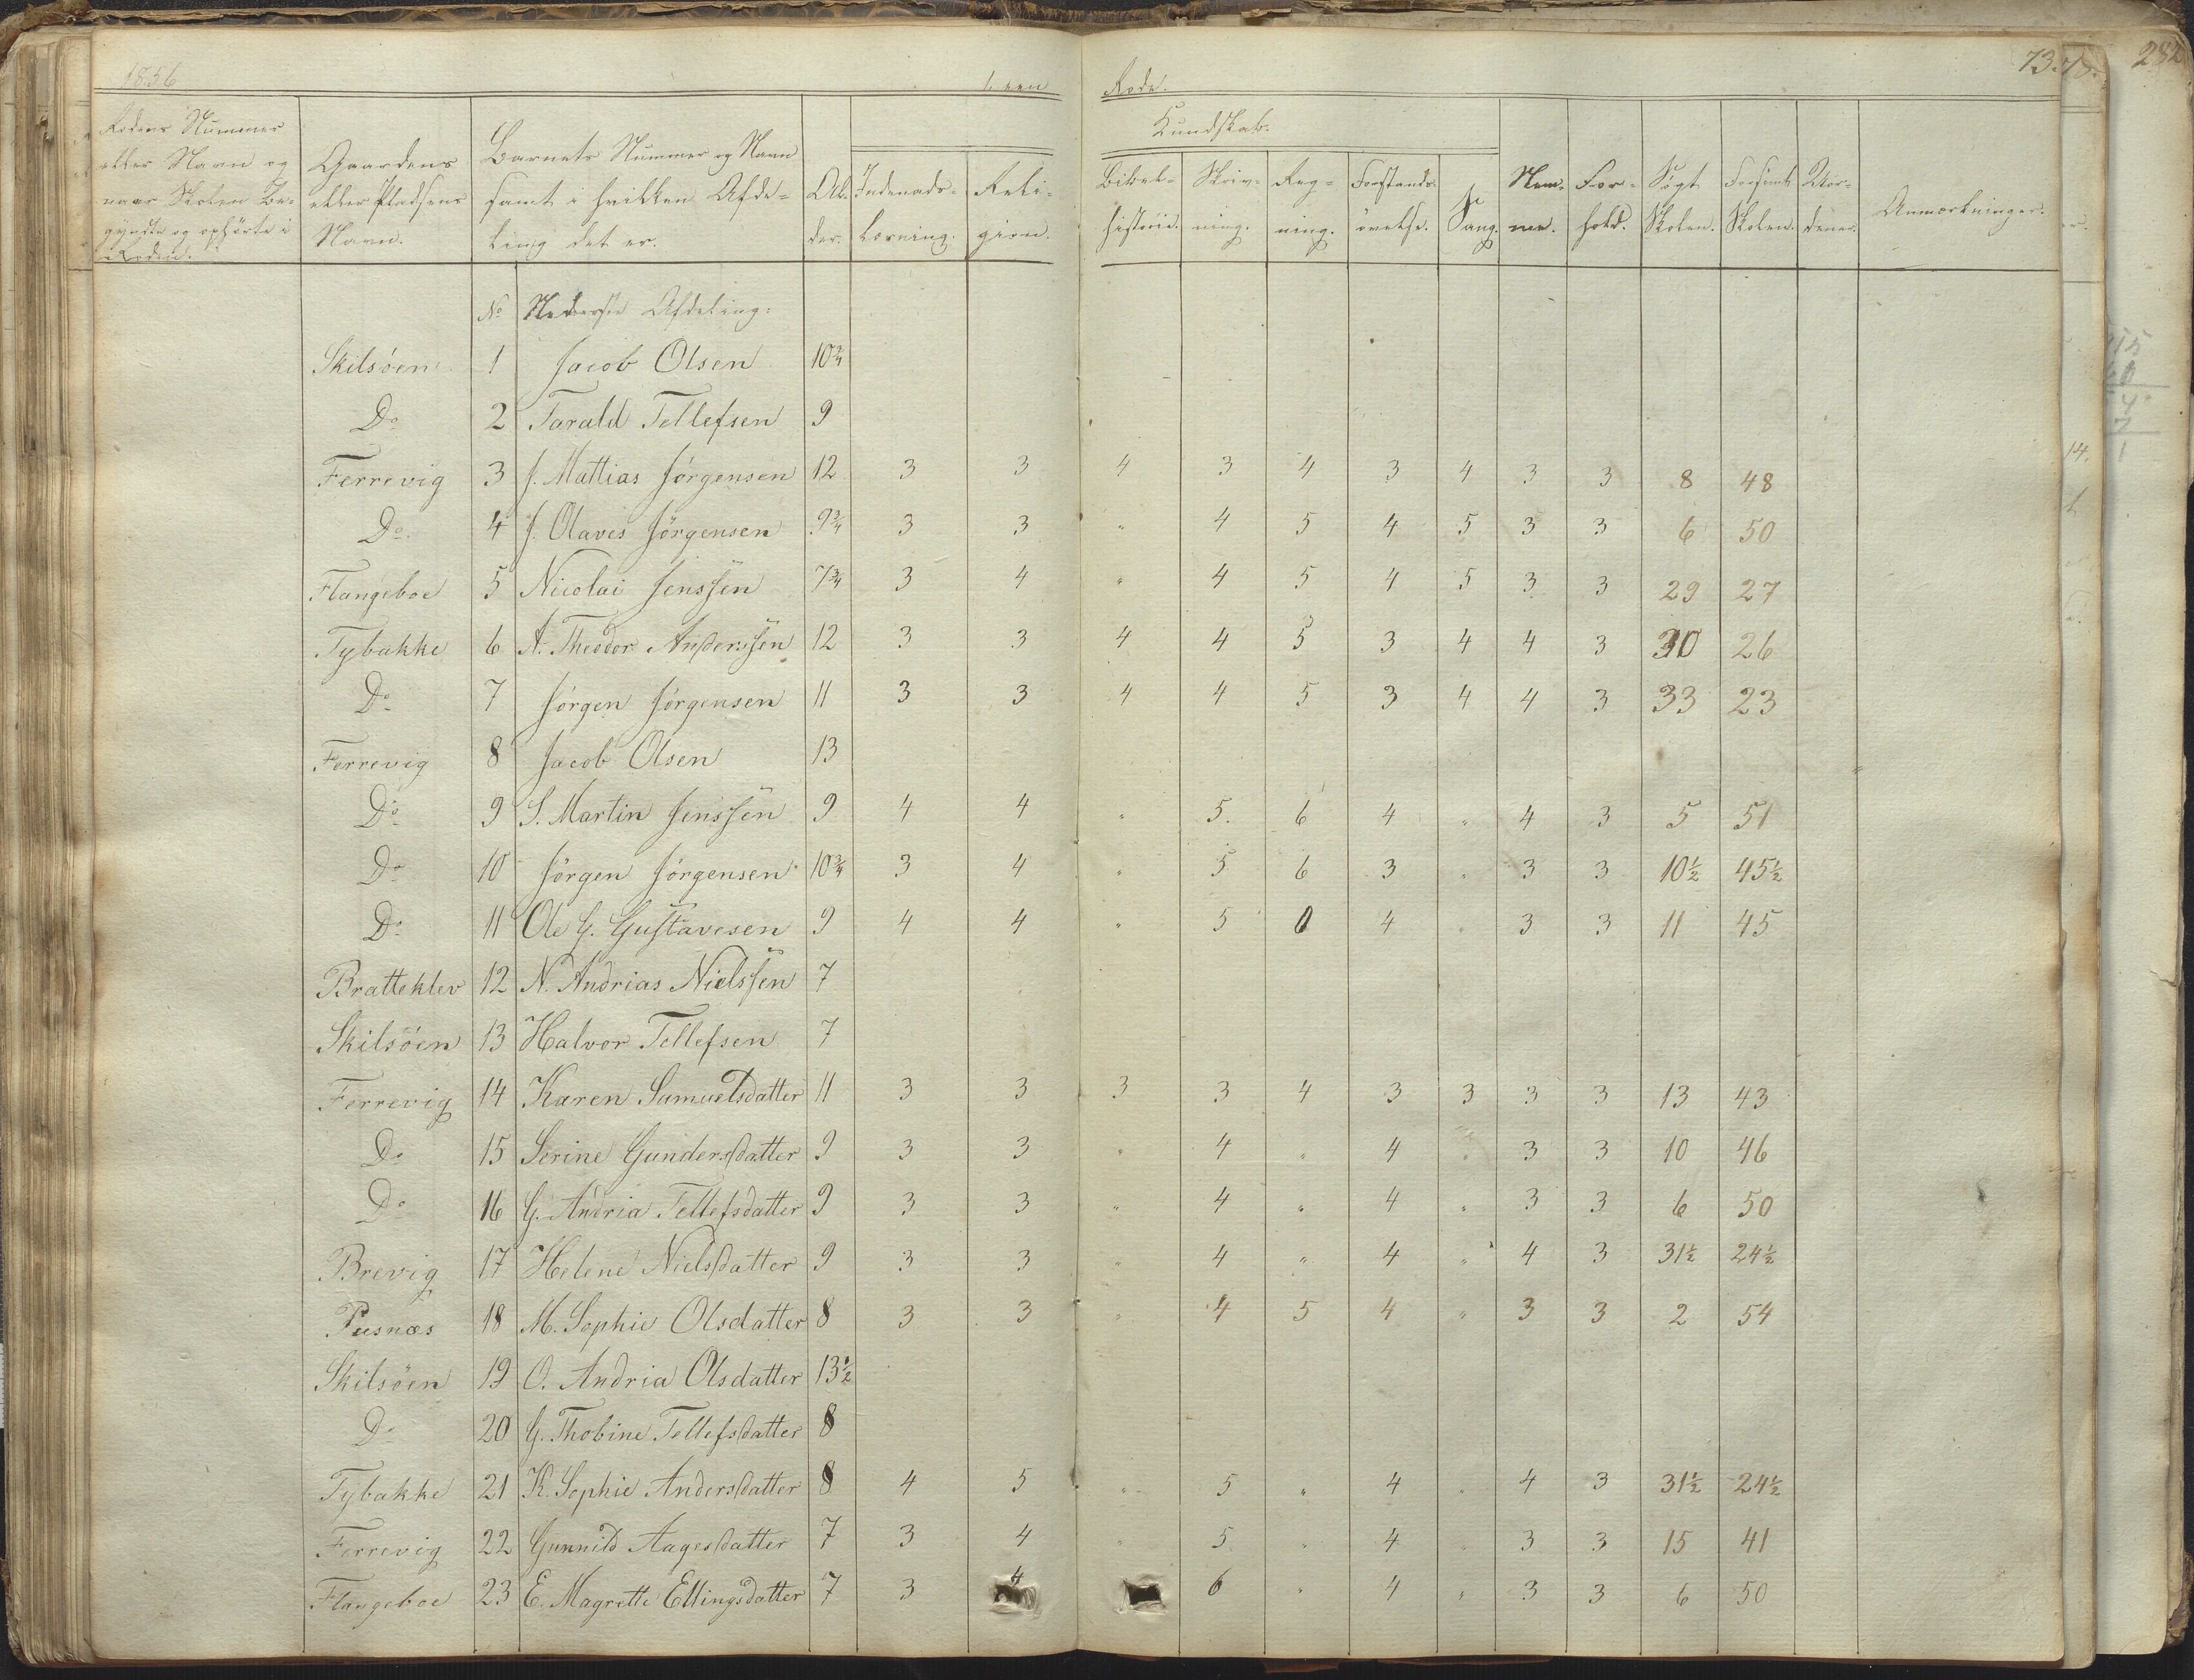 1856 1. een Rode. 73.
282
Rodens Nummer eller Navn og naar Skolen Begyndte og ophørte i Roden.
Gaardens eller Pladsens Navn.
Barnets Nummer og Navn samt i hvilken Afdeling det er.
Alder.
Indenadslæsning.
Religion.
Kundskab.
Bibelhistorie.
Skrivning.
Regning.
Forstandsövelse.
Sang.
Nemme.
Forhold.
Søgt Skolen.
Forsömt Skolen.
Anmærkninger.
No Nederste Afdeling:
Skilsöen 1 Jacob Olsen 10¾
Do 2 Tarald Tellefsen 9
Ferrevig 3 J. Mattias Jörgensen 12 3 3 4 3 4 3 4 3 3 8 48
Do. 4 J. Olaves Jörgensen 9¾ 3 3 " 4 5 4 5 3 3 6 50
Flangeboe 5 Nicolai Jenssen 7¾ 3 4 " 4 5 4 5 3 3 29 27
Tybakke 6 A. Theodor Anderssen 12 3 3 4 4 5 3 4 4 3 30 26
Do 7 Jörgen Jörgensen 11 3 3 4 4 5 3 4 4 3 33 23
Ferrevig 8 Jacob Olsen 13
Do 9 S. Martin Jenssen 9 4 4 " 5. 6 4 " 4 3 5 51
Do 10 Jörgen Jörgensen 10¾ 3 4 " 5 6 3 " 3 3 10½ 45½
Do 11 Ole G. Gustavesen 9 4 4 " 5 0 4 " 3 3 11 45
Bratteklev 12 N. Andrias Nielssen 7
Skilsöen 13 Halvor Tellefsen 7
Ferrevig 14 Karen Samuelsdatter 11 3 3 3 3 4 3 3 3 3 13 43
Do 15 Serine Gundersdatter 9 3 3 " 4 " 4 " 3 3 10 46
Do 16 G. Andria Tellefsdatter 9 3 3 " 4 " 4 " 3 3 6 50
Brevig 17 Helene Nielsdatter 9 3 3 " 4 " 4 " 4 3 31½ 24½
Pusnæs 18 M. Sophie Olsdatter 8 3 3 " 4 5 4 " 3 3 2 54
Skilsöen 19 O. Andria Olsdatter 13½
Do 20 G. Thobine Tellefsdatter 8
Tybakke 21 K. Sophie Andersdatter 8 4 5 " 5 " 4 " 4 3 31½ 24½
Ferrevig 22 Gunnild Aagesdatter 7 3 4 " 5 " 4 " 3 3 15 41
Flangeboe 23 E. Magrette Ellingsdatter 7 3 4 6 " 4 " 3 3 6 50